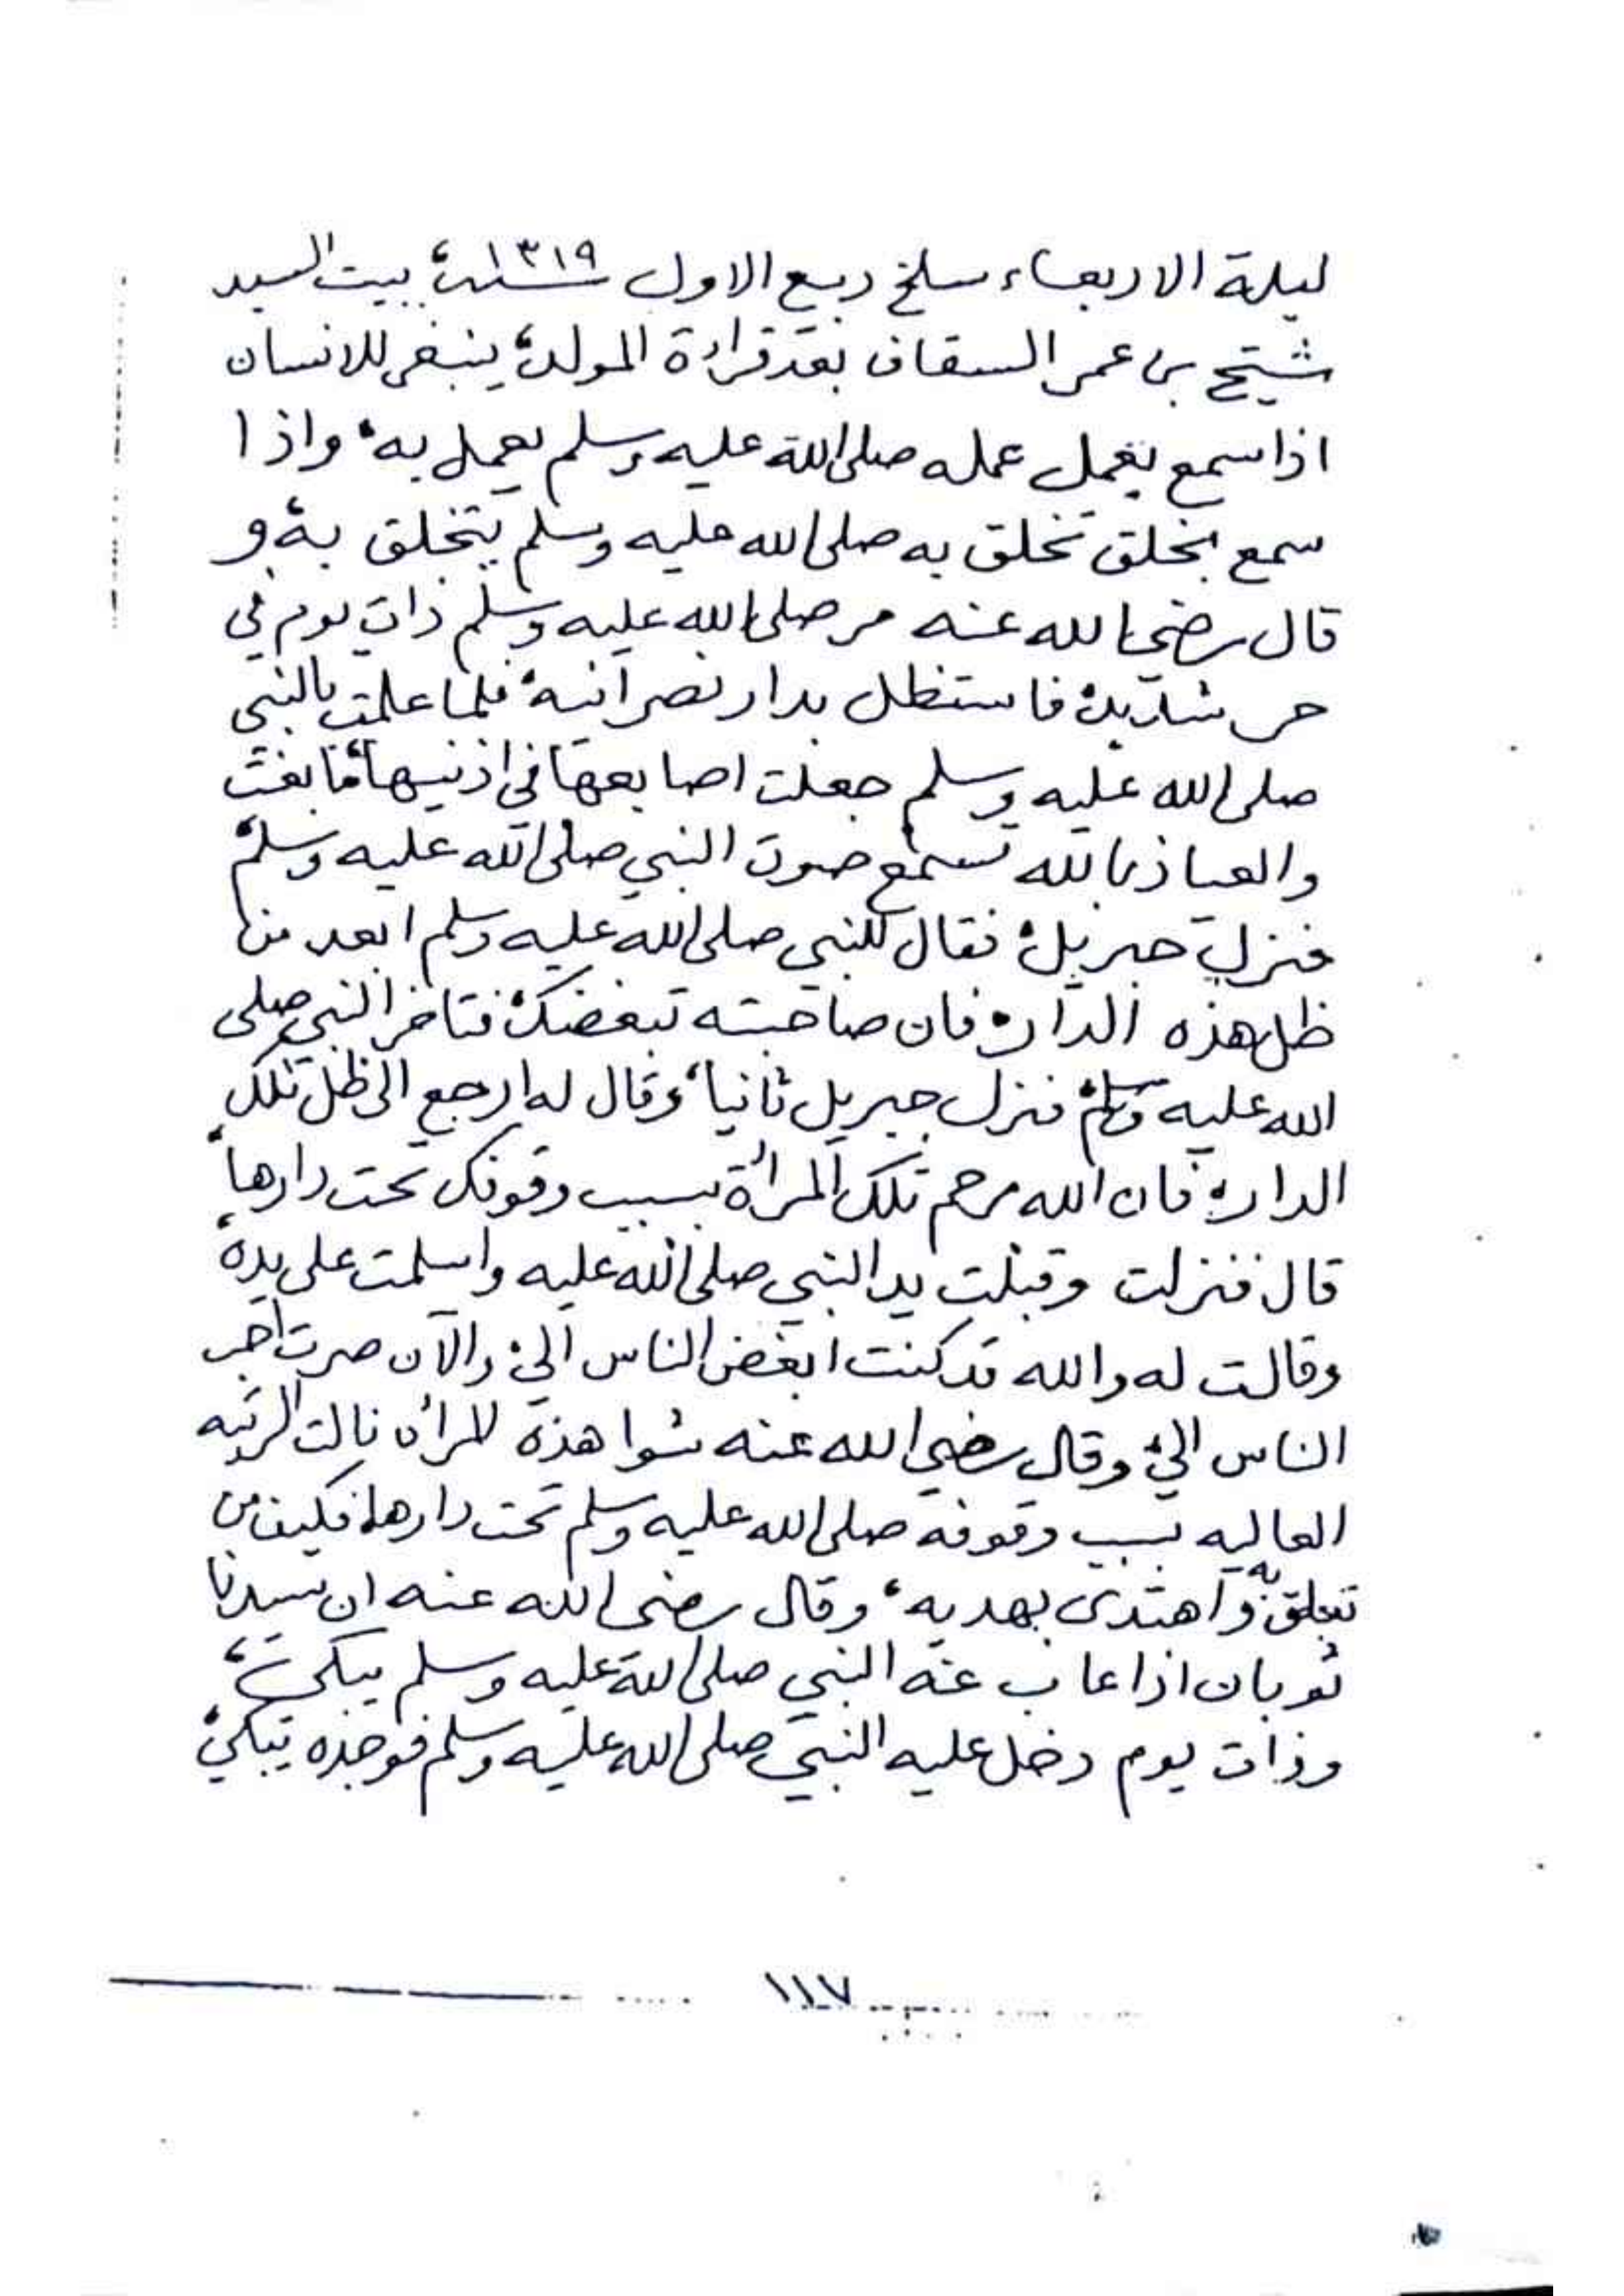 ليلة الاربعاء سلخ ربيع الاول سنة ١٣١٩، ببيت السيد
شيخ بن عمر السقاف بعد قراءة المولد، ينبغي للانسان
اذا سمع بعمل عمله صلى الله عليه وسلم يعمل به، واذا
سمع بخلق تخلق به صلى الله عليه وسلم يتخلق به، و
قال رضي الله عنه مر صلى الله عليه وسلم ذات يوم في
حر شديد، فاستظل بدار نصرانيه، فلما علمت بالنبي
صلى الله عليه وسلم جعلت اصابعها في اذنيها، ما بغت
والعياذ بالله تسمع صوت النبي صلى الله عليه وسلم،
فنزل جبريل، فقال للنبي صلى الله عليه وسلم ابعد من
ظل هذه الدار، فان صاحبته تبغضك، فتاخر النبي صلى
الله عليه وسلم، فنزل جبريل ثانيا، وقال له ارجع الى ظل تلك
الدار، فان الله رحم تلك المرأة بسبب وقوفك تحت دارها،
قال فنزلت وقبلت يد النبي صلى الله عليه واسلمت على يده،
وقالت له والله قد كنت ابغض الناس الي، والآن صرت احب
الناس الي، وقال رضي الله عنه شوا هذه المرأه نالت الرتبه
العاليه بسبب وقوفه صلى الله عليه وسلم تحت دارها، فكيف من
تعلق به واهتدى بهديه، وقال رضي الله عنه ان سيدنا
ثوبان اذا غاب عنه النبي صلى الله عليه وسلم يبكي،
وذات يوم دخل عليه النبي صلى الله عليه وسلم فوجده يبكي،
١١٧